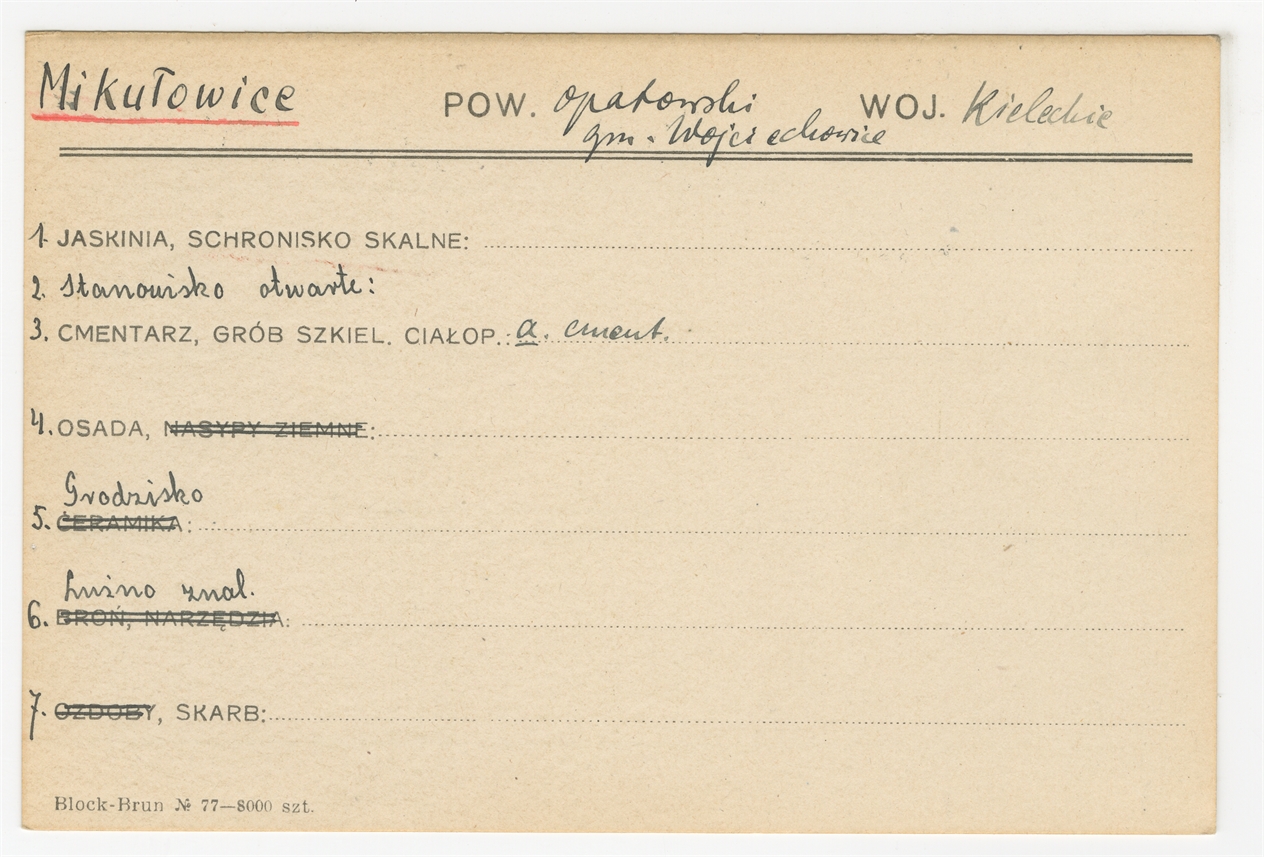 Mikułowice POW. opatowski WOJ. Kieleckie
gm. Wojciechowice
1. JASKINIA, SCHRONISKO SKALNE:
2. Stanowisko otwarte:
3. CMENTARZ, GRÓB SZKIEL. CIAŁOP.: a. cment.
4. OSADA, NASYPY ZIEMNE:
Grodzisko
5. CERAMIKA:
Luźno znal.
6. BROŃ, NARZĘDZIA:
7. OZDOBY, SKARB:
Block-Brun № 77—8000 szt.